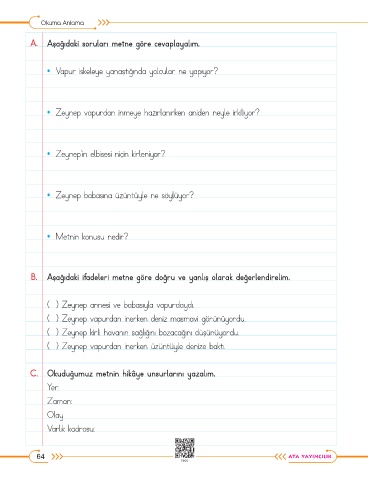 Okuma Anlama
A. Aşağıdaki soruları metne göre cevaplayalım.
• Vapur iskeleye yanaştığında yolcular ne yapıyor?
• Zeynep vapurdan inmeye hazırlanırken aniden neyle irkiliyor?
• Zeynep'in elbisesi niçin kirleniyor?
• Zeynep babasına üzüntüyle ne söylüyor?
• Metnin konusu nedir?
B. Aşağıdaki ifadeleri metne göre doğru ve yanlış olarak değerlendirelim.
( ) Zeynep annesi ve babasıyla vapurdaydı.
( ) Zeynep vapurdan inerken deniz masmavi görünüyordu.
( ) Zeynep kirli havanın sağlığını bozacağını düşünüyordu.
( ) Zeynep vapurdan inerken üzüntüyle denize baktı.
C. Okuduğumuz metnin hikâye unsurlarını yazalım.
Yer:
Zaman:
Olay
Varlık kadrosu:
64
ATA YAYINCILIK